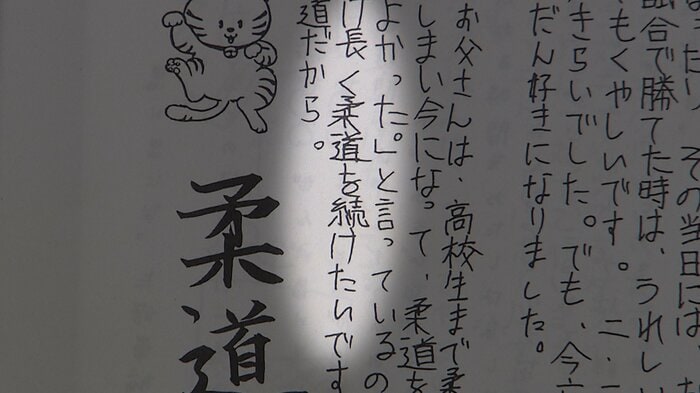 その当日には、
試合で勝てた時は、うれしい
もくやしいです。二、
きらいでした。でも、今
だん好きになりました。
お父さんは、高校生まで柔
しまい今になって、柔道を
よかった。」と言っているの
け長く柔道を続けたいです
道だから。
柔道